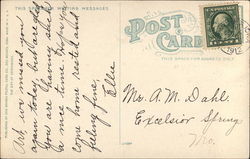 THIS SPACE FOR WRITING MESSAGES
But we missed you
again today, but are glad
you are having such
a nice time. Hope you
come home rested and
feeling fine.
Ellie
POST CARD
THIS SPACE FOR ADDRESS ONLY
1912
Mr. A. M. Dahl.
Excelsior Spring
Mo.